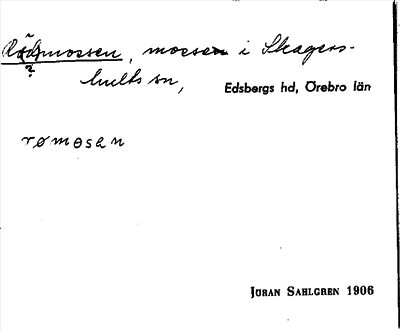 Rödmossen, mossen i Skagers-
hults sn,
Edsbergs hd, Örebro län
?
rømosen
Jöran Sahlgren 1906